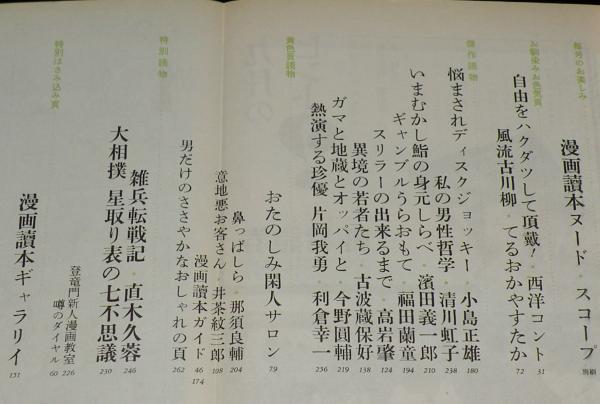 毎号のお楽しみ
漫画讀本ヌード・スコープ 別冊
お馴染みお色気頁
自由をハクダツして頂戴!・西洋コント 31
風流古川柳・てるおかやすたか 72
傑作読物
悩まされディスクジョッキー・小島正雄 180
私の男性哲学・清川虹子 238
いまむかし鮨の身元しらべ・濱田義一郎 210
ギャンブルうらおもて・福田蘭童 194
スリラーの出来るまで・高岩肇 124
異境の若者たち・古波蔵保好 138
ガマと地蔵とオッパイと・今野圓輔 219
熱演する珍優 片岡我勇・利倉幸一 256
黄色頁読物
おたのしみ閑人サロン 79
鼻っぱしら・那須良輔 204
意地悪お客さん・井茶紋三郎 108
漫画讀本ガイド 46 174
男だけのささやかなおしゃれの頁 262
特別読物
雑兵転戦記・直木久蓉 246
大相撲 星取り表の七不思議 230
登竜門新人漫画教室 226
噂のダイヤル 60
特別はさみ込み頁
漫画讀本ギャラリイ 151